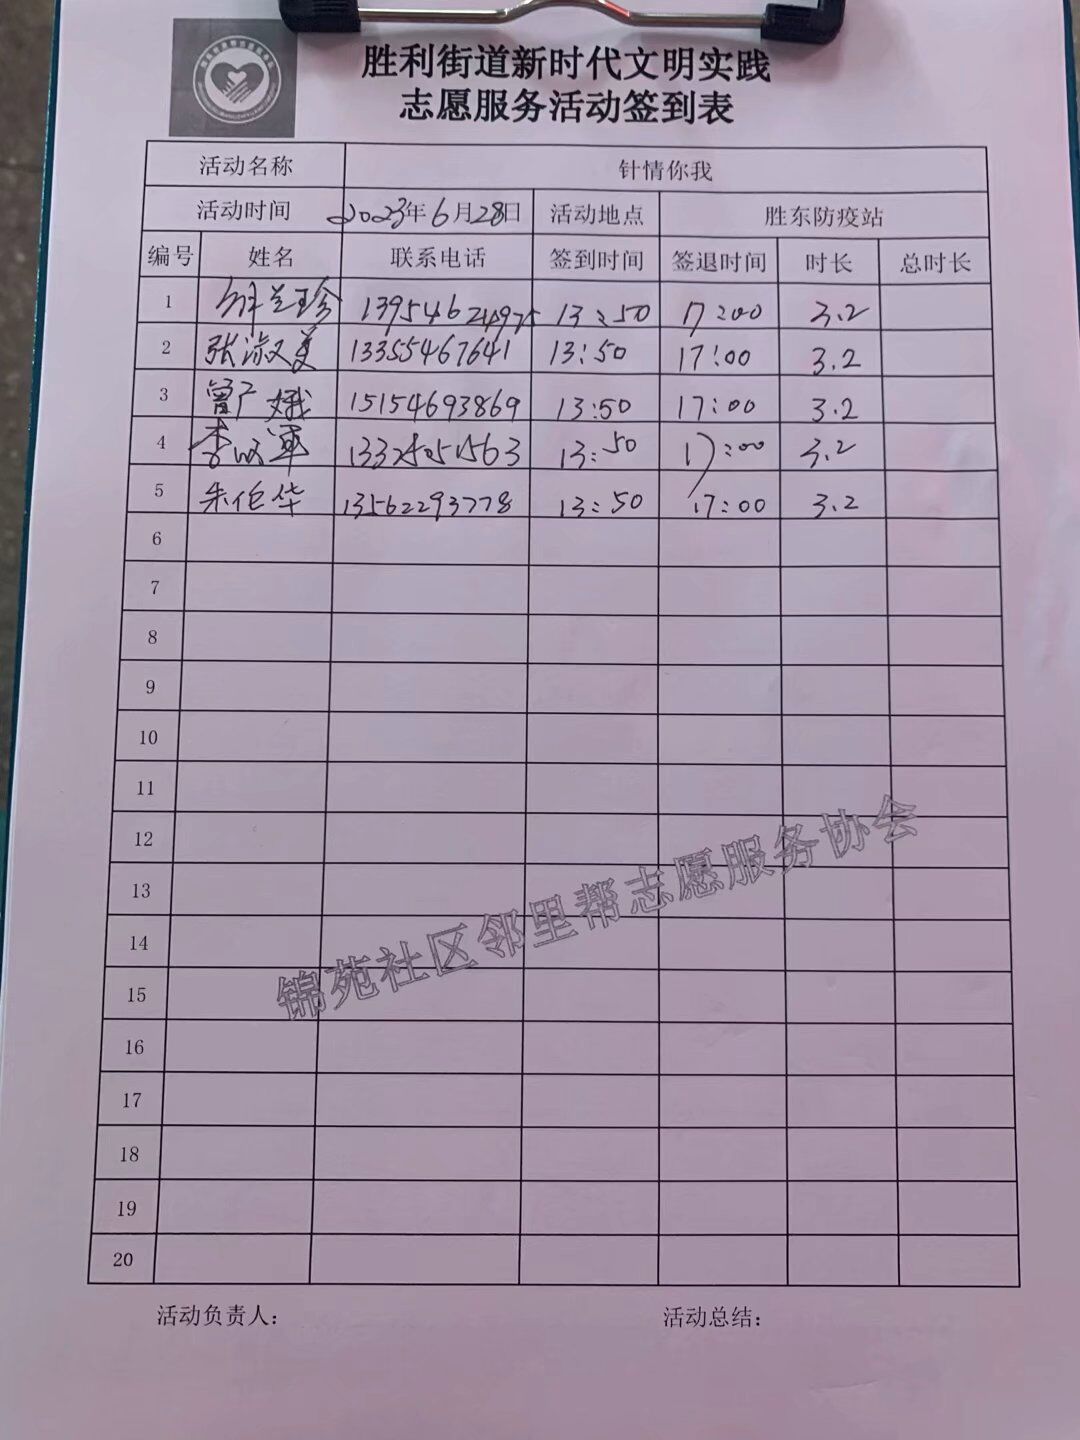 胜利街道新时代文明实践
志愿服务活动签到表
活动名称 针情你我
活动时间 2023年6月28日 活动地点 胜东防疫站
编号 姓名 联系电话 签到时间 签退时间 时长 总时长
1 兰珍 13954624975 13:50 17:00 3.2
2 张淑美 13355467641 13:50 17:00 3.2
3 曾广娥 15154693869 13:50 17:00 3.2
4 李 军 13:50 17:00 3.2
5 朱伦华 13562293778 13:50 17:00 3.2
6
7
8
9
10
11
12
13
14
15
16
17
18
19
20
锦苑社区邻里帮志愿服务协会
活动负责人: 活动总结: